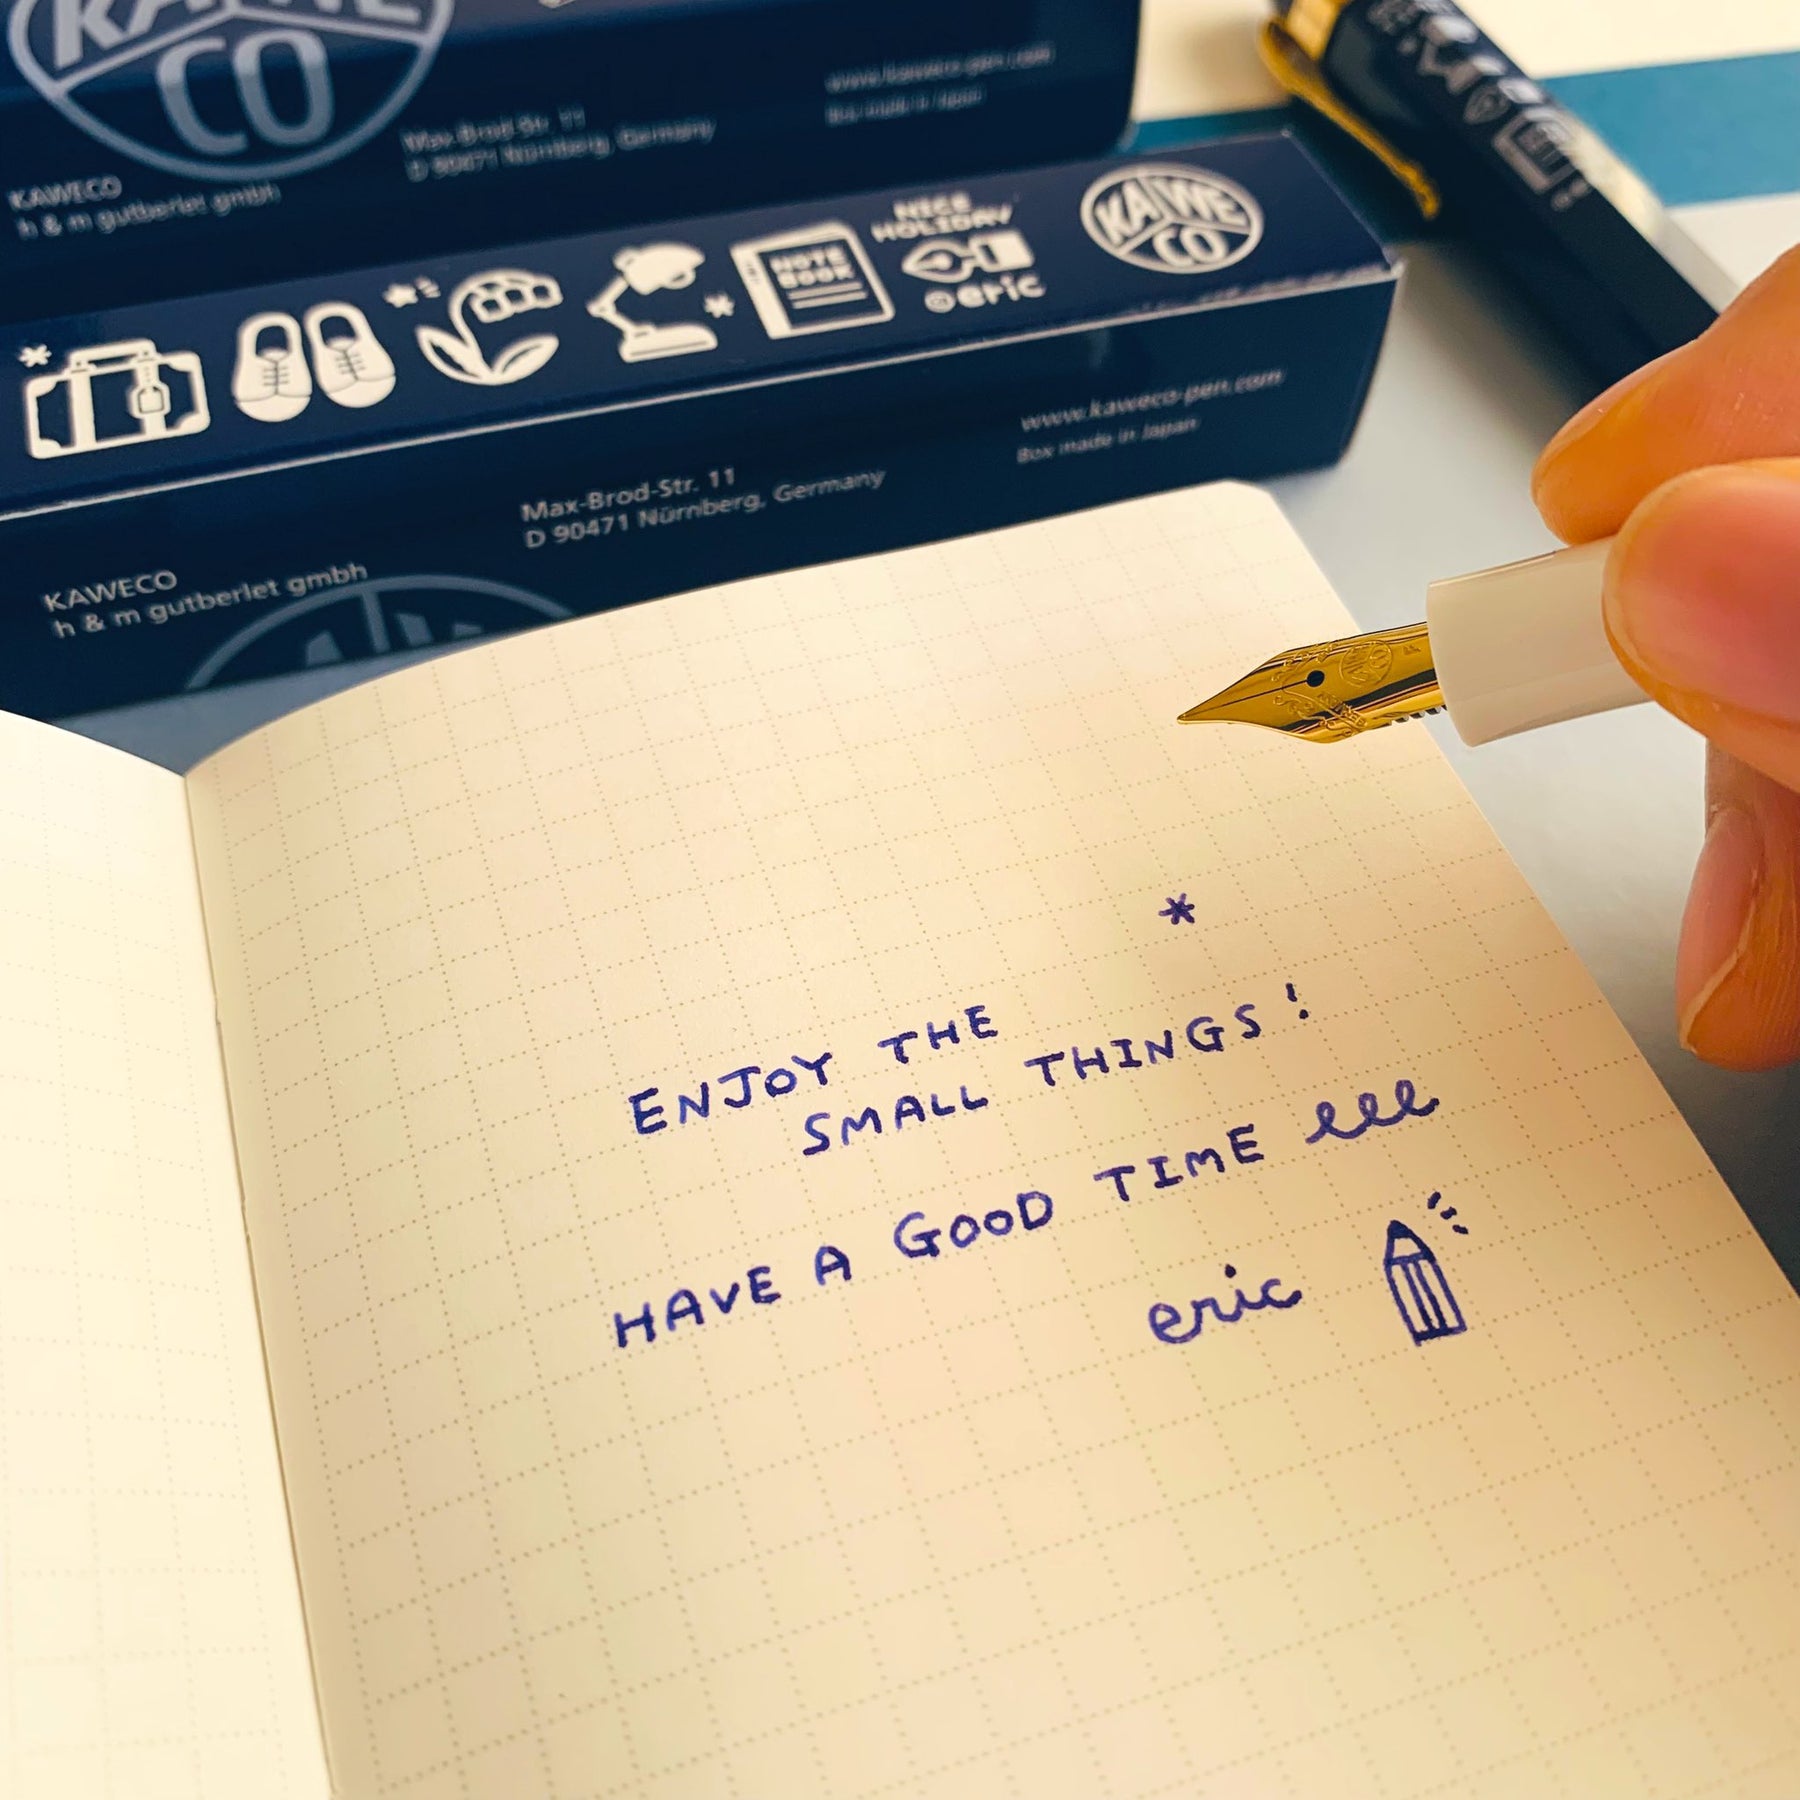 KAWECO
KAWECO
h & m gutberlet gmbh
Max-Brod-Str. 11
D 90471 Nürnberg, Germany
www.kaweco-pen.com
Box made in Japan
NOTE
BOOK
NICE
HOLIDAY
©eric
KAWECO
KAWECO
h & m gutberlet gmbh
Max-Brod-Str. 11
D 90471 Nürnberg, Germany
www.kaweco-pen.com
Box made in Japan
*
ENJOY THE
SMALL THINGS!
HAVE A GOOD TIME
eric